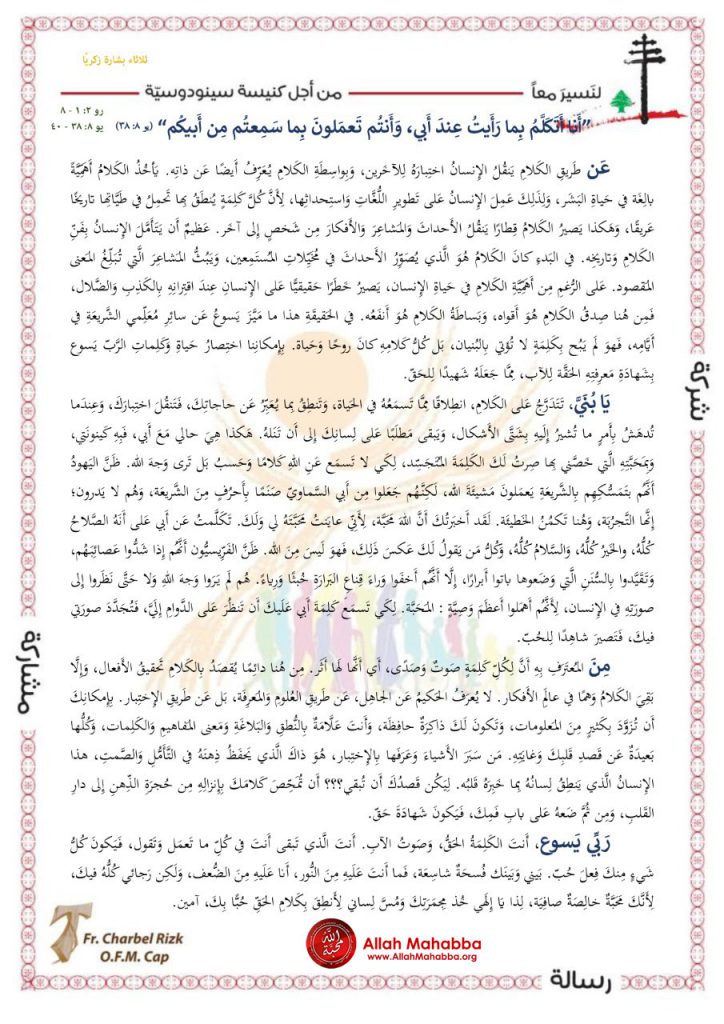 ثلاثاء بشارة زكريّا
لنَسيرَ معاً
من أجل كنيسة سينودوسيّة
رو ٢: ١ - ٨
يو ٨: ٣٨ - ٤٠
"أَنا أَتَكَلَّمُ بِما رَأَيتُ عِندَ أَبي، وَأَنتُم تَعمَلونَ بِما سَمِعتُم مِن أَبيكُم" (يو ٨: ٣٨)
عَن طَريقِ الكَلامِ يَنقُلُ الإِنسانُ اختِبارَهُ لِلآخَرين، وَبِواسِطَةِ الكَلامِ يُعَرِّفُ أَيضًا عَن ذاتِه. يَأخُذُ الكَلامُ أَهَمِّيَّةً
بالِغَة في حَياةِ البَشَر، وَلِذَلِكَ عَمِلَ الإِنسانُ عَلى تَطويرِ اللُّغَاتِ وَاستِحداثِها، لِأَنَّ كُلَّ كَلِمَةٍ يُنطَقُ بِها تَحمِلُ في طَيَّاتِها تاريخًا
عَريقًا، وَهَكَذا يَصيرُ الكَلامُ قِطارًا يَنقُلُ الأَحداثَ وَالمَشاعِرَ وَالأَفكارَ مِن شَخصٍ إِلى آخَر. عَظيمٌ أَن يَتَأَمَّلَ الإِنسانُ بِفَنِّ
الكَلامِ وَتاريخِه. في البَدءِ كانَ الكَلامُ هُوَ الَّذي يُصَوِّرُ الأَحداثَ في مُخَيِّلاتِ المُستَمِعين، وَيَبُثُّ المَشاعِرَ الَّتي تُبَلِّغُ المَعنى
المَقصود. عَلى الرُّغمِ مِن أَهَمِّيَّةِ الكَلامِ في حَياةِ الإِنسان، يَصيرُ خَطَرًا حَقيقيًّا عَلى الإِنسانِ عِندَ اقتِرانِهِ بِالكَذِبِ وَالضَّلال،
فَمِن هُنا صِدقُ الكَلامِ هُوَ أَقواه، وَبَساطَةُ الكَلامِ هُوَ أَنفَعُه. في الحَقيقَةِ هذا ما مَيَّزَ يَسوعُ عَن سائِرِ مُعَلِّمي الشَّريعَةِ في
أَيَّامِه، فَهوَ لَم يَبُح بِكَلِمَةٍ لا تُؤتي بِالبُنيان، بَل كُلُّ كَلامِهِ كانَ روحًا وَحَياة. بِإِمكانِنا اختِصارُ حَياةِ وَكَلِماتِ الرَّبِّ يَسوع
بِشَهادَةِ مَعرِفَتِهِ الحَقَّة لِلآب، مِمَّا جَعَلَهُ شَهيدًا لِلحَقّ.
يَا بُنَيَّ، تَتَدَرَّجُ عَلى الكَلام، انطِلاقًا مِمَّا تَسمَعُهُ في الحَياة، وَتَنطِقُ بِما يُعَبِّرُ عَن حاجاتِكَ، فَتَنقُلَ اختِبارَكَ، وَعِندَما
تُدهَشُ بِأَمرٍ ما تُشيرُ إِلَيهِ بِشَتَّى الأَشكال، وَيَبقى مَطلَبًا عَلى لِسانِكَ إِلى أَن تَنَلهُ. هَكَذا هِيَ حالي مَعَ أَبي، فَبِهِ كَينونَتي،
وَبِمَحَبَّتِهِ الَّتي خَصَّني بِها صِرتُ لَكَ الكَلِمَةَ المُتَجَسِّد، لِكَي لا تَسمَعَ عَنِ اللهِ كَلامًا وَحَسبُ بَل تَرى وَجهَ الله. ظَنَّ اليَهودُ
أَنَّهُم بِتَمَسُّكِهِم بِالشَّريعَةِ يَعمَلونَ مَشيئَةَ الله، لَكِنَّهُم جَعَلوا مِن أَبي السَّماويِّ صَنَمًا بِأَحرُفٍ مِنَ الشَّريعَة، وَهُم لا يَدرون؛
إِنَّها التَّجرُبَة، وَهُنا تَكمُنُ الخَطيئَة. لَقَد أَخبَرتُكَ أَنَّ اللهَ مَحَبَّة، لِأَنّي عايَنتُ مَحَبَّتَهُ لي وَلَكَ. تَكَلَّمتُ عَن أَبي عَلى أَنَّهُ الصَّلاحُ
كُلُّه، والخَيرُ كُلُّه، وَالسَّلامُ كُلُّه، وَكُلُّ مَن يَقولُ لَكَ عَكسَ ذَلِكَ، فَهوَ لَيسَ مِنَ الله. ظَنَّ الفَرّيسيُّون أَنَّهُم إِذا شَدُّوا عَصائِبَهُم،
وَتَقَيَّدوا بِالسُّنَنِ الَّتي وَضَعوها باتوا أَبرارًا، إِلَّا أَنَّهُم أَخفَوا وَراءَ قِناعِ البَرارَةِ خُبثًا وَرِياءً. هُم لَم يَرَوا وَجهَ اللهِ وَلا حَتَّى نَظَروا إِلى
صورَتِهِ في الإِنسان، لِأَنَّهُم أَهمَلوا أَعظَمَ وَصِيَّةٍ : المَحَبَّة. لِكَي تَسمَعَ كَلِمَةَ أَبي عَلَيكَ أَن تَنظُرَ عَلى الدَّوامِ إِلَيَّ، فَتُجَدَّدَ صورَتي
فيكَ، فَتَصيرَ شاهِدًا لِلحُبّ.
مِنَ المُعتَرَفِ بِهِ أَنَّ لِكُلِّ كَلِمَةٍ صَوتٌ وَصَدًى، أَي أَنَّها لَها أَثَر. مِن هُنا دائِمًا يُقصَدُ بِالكَلامِ تَحقيقُ الأَفعال، وَإِلَّا
بَقِيَ الكَلامُ وَهمًا في عالَمِ الأَفكار. لا يُعرَفُ الحَكيمُ عَنِ الجاهِل، عَن طَريقِ العُلومِ وَالمَعرِفَة، بَل عَن طَريقِ الإِختِبار. بِإِمكانِكَ
أَن تُزَوَّدَ بِكَثيرٍ مِنَ المَعلومات، وَتَكونَ لَكَ ذاكِرَةٌ حافِظَة، وَأَنتَ عَلَّامَةٌ بِالنُّطقِ وَالبَلاغَةِ وَمَعنى المَفاهيمِ وَالكَلِمات، وَكُلُّها
بَعيدَةٌ عَن قَصدِ قَلبِكَ وَغايَتِهِ. مَن سَبَرَ الأَشياءَ وَعَرَفَها بِالإِختِبار، هُوَ ذاكَ الَّذي يَحفَظُ ذِهنَهُ في التَّأَمُّلِ وَالصَّمت، هذا
الإِنسانُ الَّذي يَنطِقُ لِسانُهُ بِما خَبِرَهُ قَلبُه. لِيَكُن قَصدُكَ أَن تُبقي؟؟؟ أَن تُمَحِّصَ كَلامَكَ بِإِنزالِهِ مِن حُجرَةِ الذِّهنِ إِلى دارِ
القَلب، وَمِن ثُمَّ ضَعهُ عَلى بابِ فَمِكَ، فَيَكونَ شَهادَةَ حَقّ.
رَبِّي يَسوع، أَنتَ الكَلِمَةُ الحَقُّ، وَصَوتُ الآب. أَنتَ الَّذي تَبقى أَنتَ في كُلِّ ما تَعمَل وَتَقول، فَيَكونُ كُلُّ
شَيءٍ مِنكَ فِعلَ حُبّ. بَيني وَبَينَك فُسحَةٌ شاسِعَة، فَما أَنتَ عَلَيهِ مِنَ النُّور، أَنا عَلَيهِ مِنَ الضُّعف، وَلَكِن رَجائي كُلُّهُ فيكَ،
لِأَنَّكَ مَحَبَّةٌ خالِصَةٌ صافِيَة، لِذا يَا إِلَهي خُذ مِجمَرَتَكَ وَمُسَّ لِساني لِأَنطِقَ بِكَلامِ الحَقِّ حُبًّا بِكَ، آمين.
شركة
مشاركة
رسالة
Fr. Charbel Rizk
O.F.M. Cap
الله محبّة
Allah Mahabba
www.AllahMahabba.org